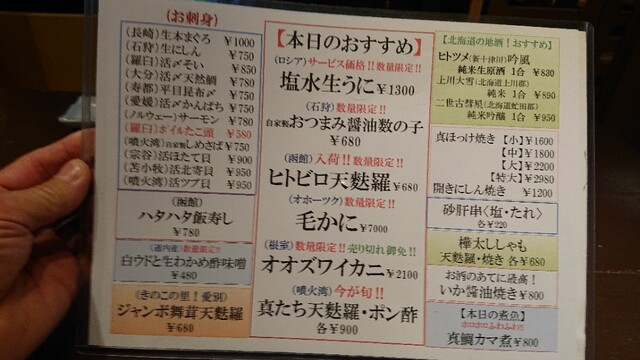 (お刺身)
(長崎)生本まぐろ ￥1000
(石狩)生にしん ￥750
(羅臼)活〆そい ￥850
(大分)活〆天然鯛 ￥750
(寿都)平目昆布〆 ￥750
(愛媛)活〆かんぱち ￥750
(ノルウェー)サーモン ￥780
(羅臼)ボイルたこ頭 ￥580
(噴火湾)自家製しめさば ￥750
(宗谷)活ほたて貝 ￥900
(苫小牧)活北寄貝 ￥950
(噴火湾)活ツブ貝 ￥950
(函館)
ハタハタ飯寿し
￥780
(道内産)数量限定!!
白ウドと生わかめ酢味噌
￥480
(きのこの里!愛別)
ジャンボ舞茸天麩羅
￥680
【本日のおすすめ】
(ロシア)サービス価格!!数量限定!!
塩水生うに ￥1300
(石狩)数量限定!!
自家製おつまみ醤油数の子
￥680
(函館)入荷!!数量限定!!
ヒトビロ天麩羅 ￥680
(オホーツク)数量限定!!
毛かに ￥7000
(根室)数量限定!!売り切れ御免!!
オオズワイカニ ￥2100
(噴火湾)今が旬!!
真たち天麩羅・ポン酢
各￥900
【北海道の地酒!おすすめ】
ヒトツメ(新十津川)吟風
純米生原酒 1合 ￥830
上川大雪(北海道上川郡)
純米 1合 ￥890
二世古彗星(北海道虻田郡)
純米吟醸 1合 ￥950
真ほっけ焼き【小】￥1600
【中】￥1800
【大】￥2200
【特大】￥2980
開きにしん焼き ￥1200
砂肝串〈塩・たれ〉
各￥220
樺太ししゃも
天麩羅・焼き 各￥680
お酒のあてに最高!
いか醤油焼き ￥800
【本日の煮魚】
ホロホロふわふわ!!
真鯛カマ煮 ￥800